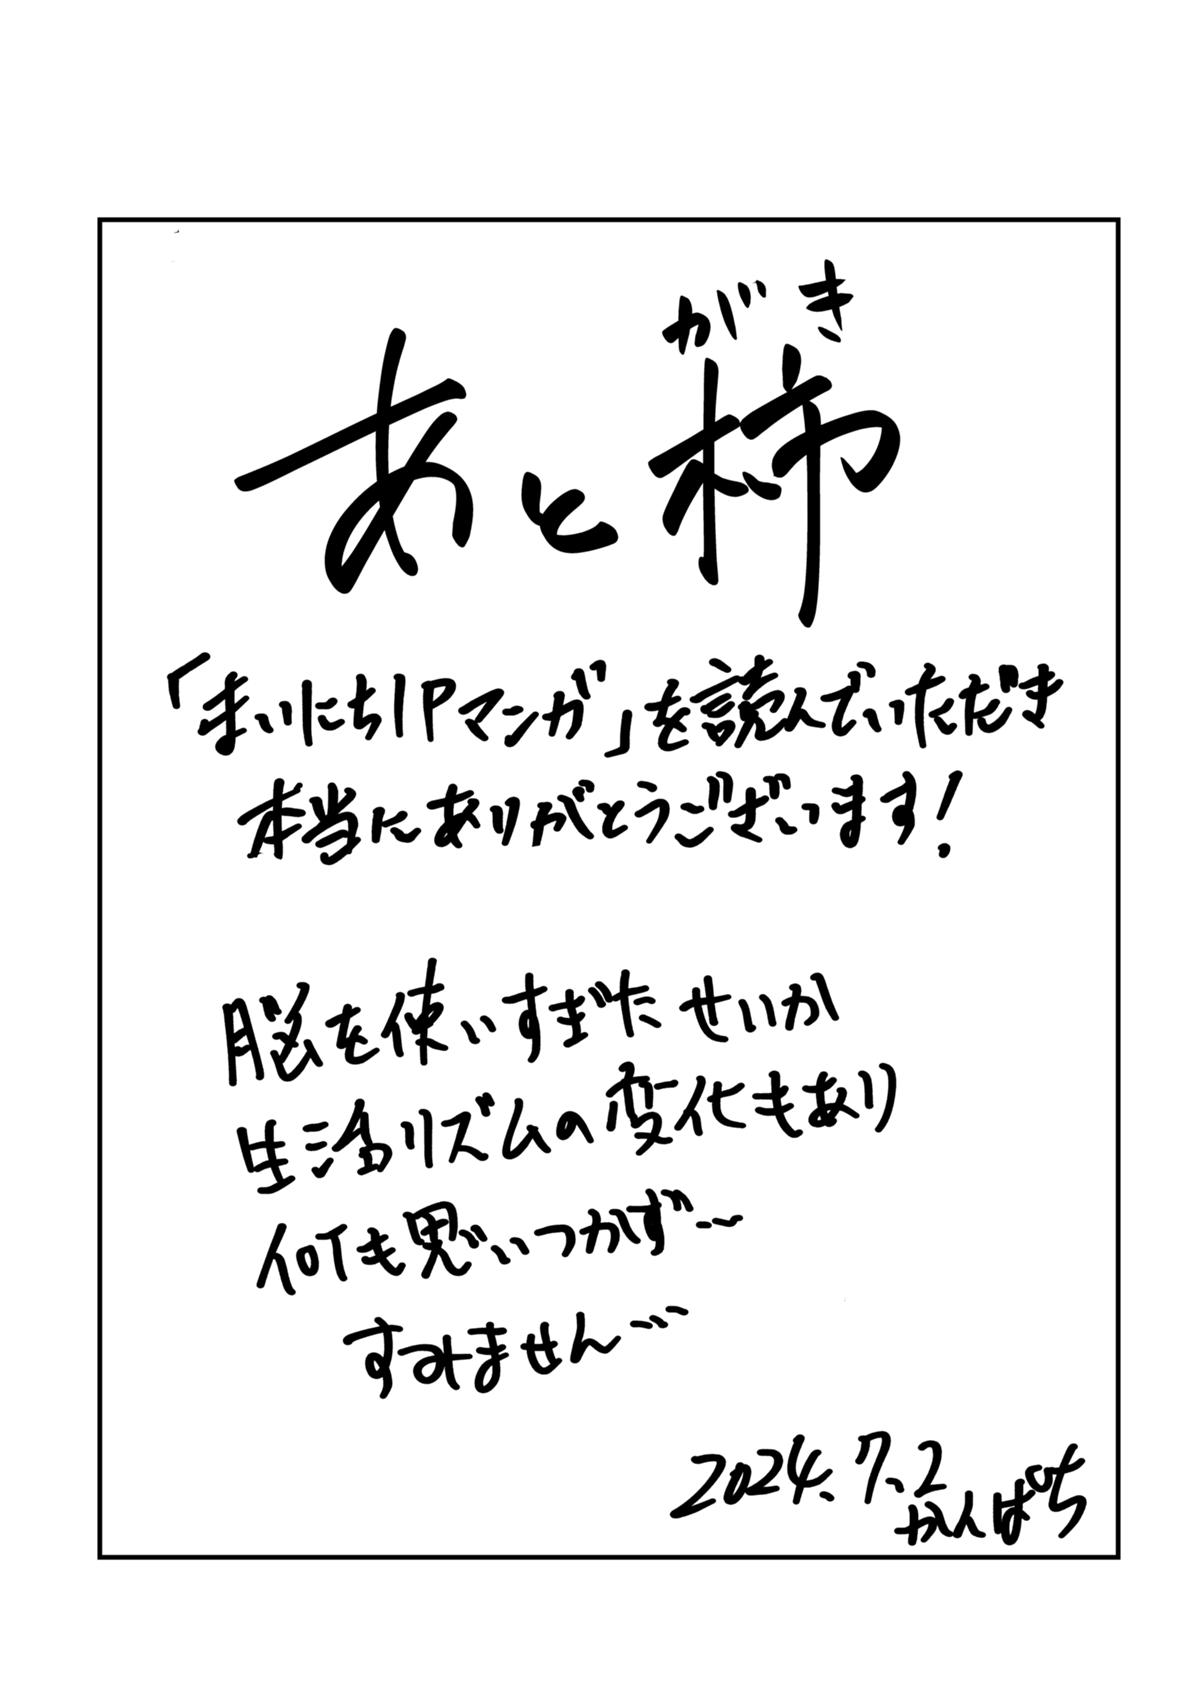 がき
あと柿
「まいにち1Pマンガ」を読んでいただき
本当にありがとうございます!
脳を使いすぎたせいか
生活リズムの変化もあり
何も思いつかず…
すみません…
2024.7.2
かんぱち